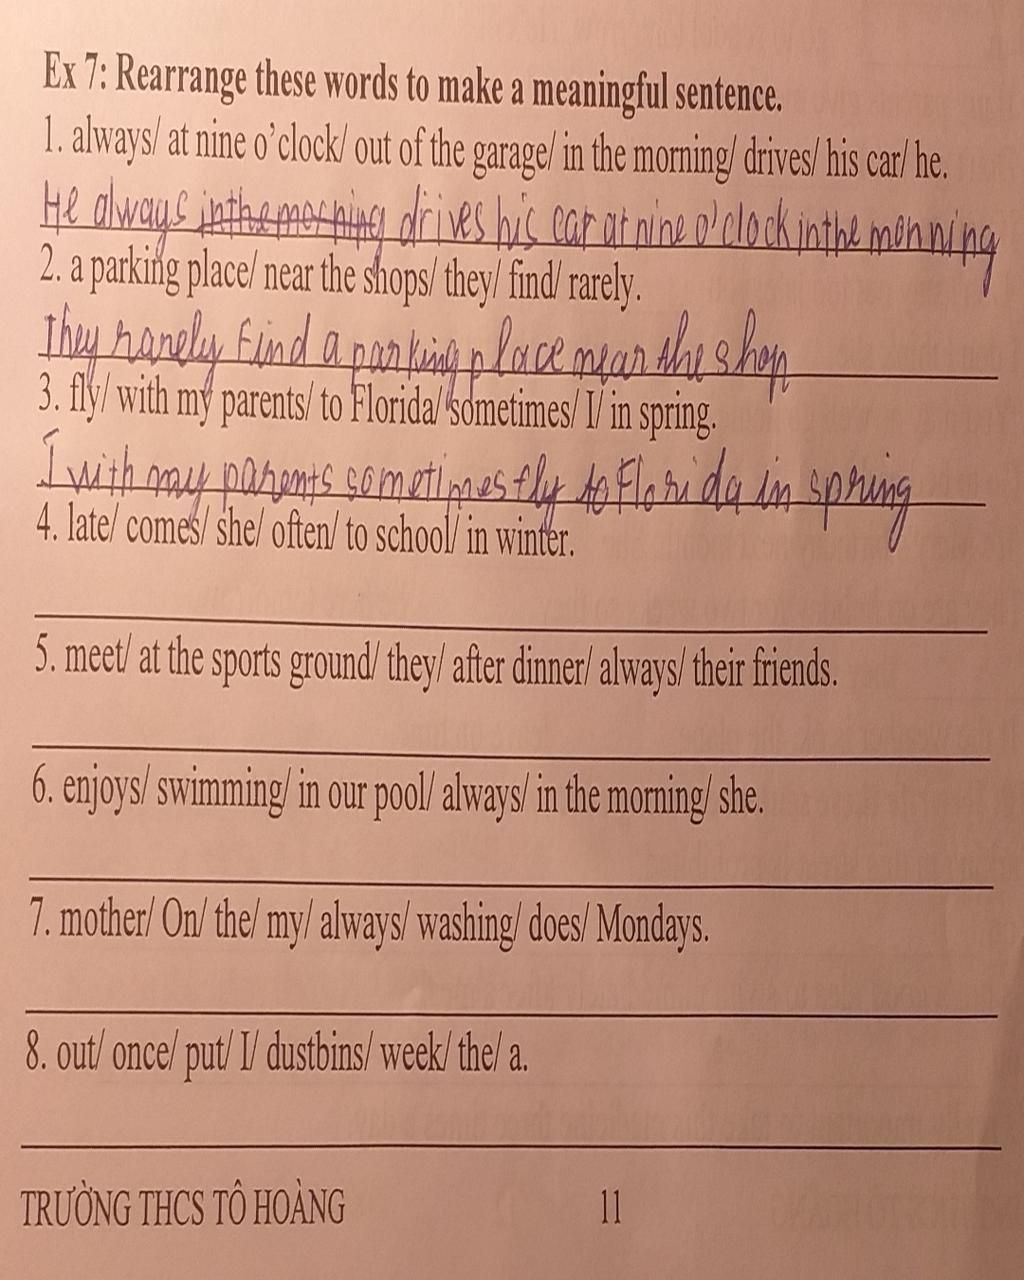 Ex 7: Rearrange these words to make a meaningful sentence.
1. always/ at nine o'clock/ out of the garage/ in the morning/ drives/ his car/ he.
He always inthemorning drives his car at nine o'clock inthe monning
2. a parking place/ near the shops/ they/ find/ rarely.
They rarely find a parking place near the shop
3. fly/ with my parents/ to Florida/ sometimes/ I/ in spring.
I with my parents sometimes fly to Florida in spring
4. late/ comes/ she/ often/ to school/ in winter.
5. meet/ at the sports ground/ they/ after dinner/ always/ their friends.
6. enjoys/ swimming/ in our pool/ always/ in the morning/ she.
7. mother/ On/ the/ my/ always/ washing/ does/ Mondays.
8. out/ once/ put/ I/ dustbins/ week/ the/ a.
TRƯỜNG THCS TÔ HOÀNG 11